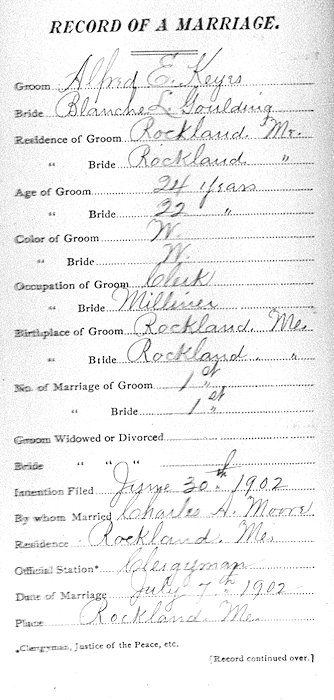 RECORD OF A MARRIAGE.
Groom Alfred E. Keyes
Bride Blanche L. Goulding
Residence of Groom Rockland. Me.
" Bride Rockland "
Age of Groom 24 years
" Bride 22 "
Color of Groom W.
" Bride W.
Occupation of Groom Clerk
" Bride Milliner
Birthplace of Groom Rockland. Me.
" Bride Rockland. "
No. of Marriage of Groom 1st
" Bride 1st
Groom Widowed or Divorced
Bride " " "
Intention Filed June 30th 1902
By whom Married Charles A. Moore
Residence Rockland Me.
Official Station* Clergyman
Date of Marriage July 7th 1902
Place Rockland. Me.
*Clergyman, Justice of the Peace, etc.
[Record continued over.]